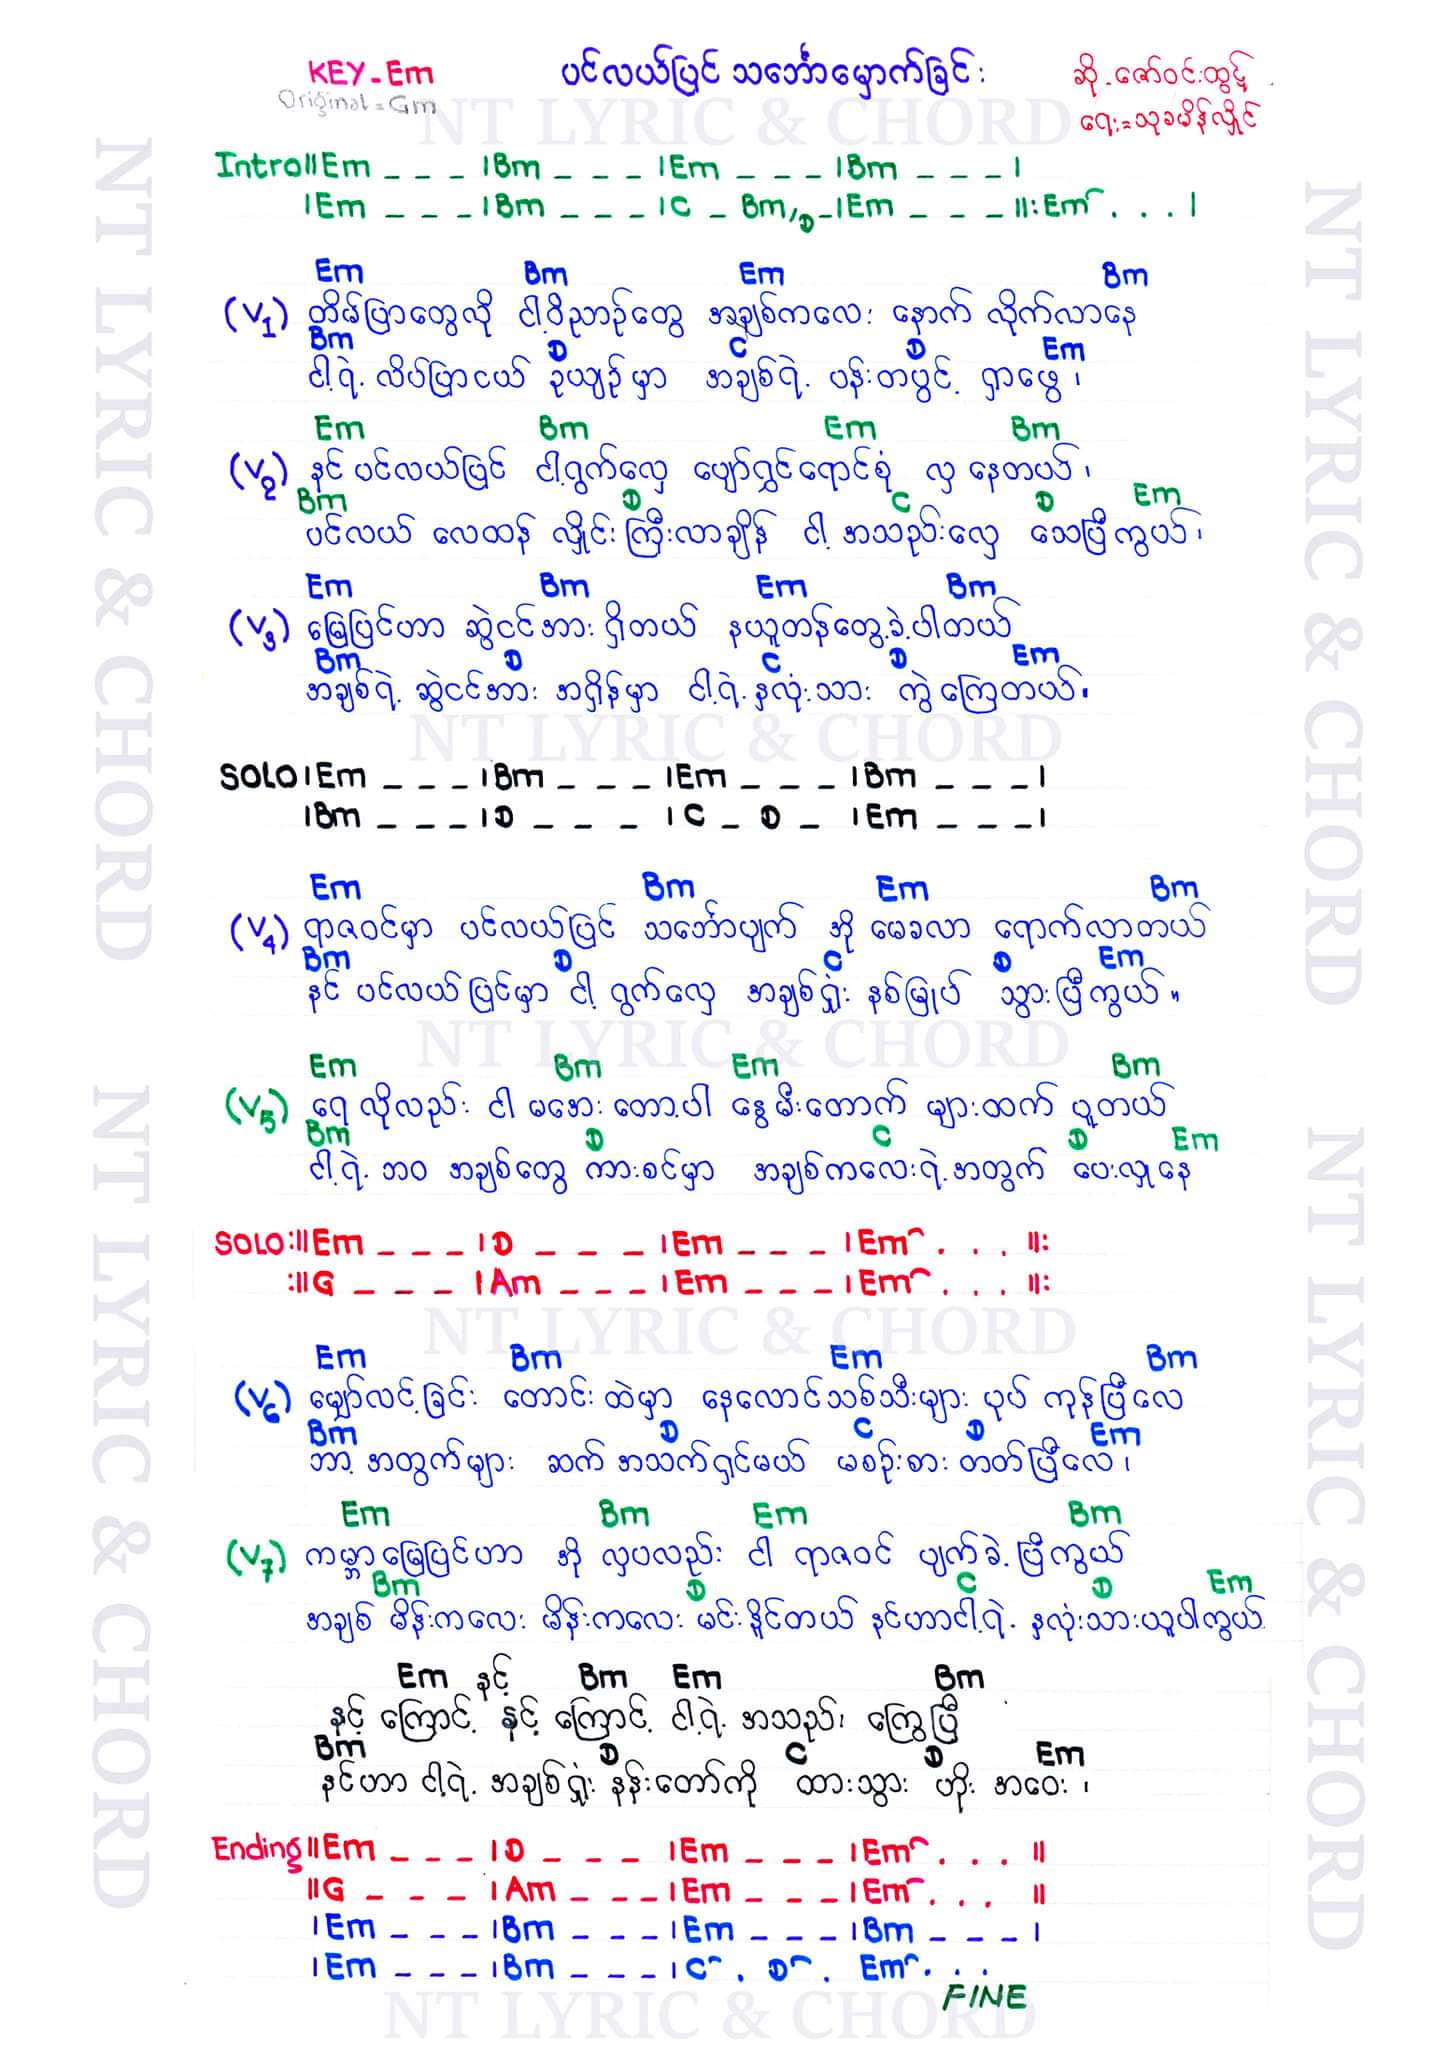 KEY-Em
Original = Gm
ပင်လယ်ပြင် သင်္ဘောမှောက်ခြင်း
ဆို-ဇော်ဝင်းထွဋ်
ရေး=သုခမိန်လှိုင်
NT LYRIC & CHORD
Intro||Em _ _ _ |Bm _ _ _ |Em _ _ _ |Bm _ _ _ |
|Em _ _ _ |Bm _ _ _ |C _ Bm/D _ |Em _ _ _ ||:Em⌒ . . . |
Em Bm Em Bm
(V1) တိမ်ပြာတွေလို ငါ့ဝိညာဉ်တွေ အချစ်ကလေး နောက် လိုက်လာနေ
Bm D C D Em
ငါ့ရဲ့ လိပ်ပြာငယ် ဥယျာဉ်မှာ အချစ်ရဲ့ ပန်းတပွင့် ရှာဖွေ၊
Em Bm Em Bm
(V2) နင် ပင်လယ်ပြင် ငါ့ရွက်လှေ ပျော်ရွှင်ရောင်စုံ လှ နေတယ်၊
Bm D C D Em
ပင်လယ် လေထန် လှိုင်းကြီးလာချိန် ငါ့ အသည်းလေး သေပြီကွယ်၊
Em Bm Em Bm
(V3) မြေပြင်ဟာ ဆွဲငင်အား ရှိတယ် နယူတန်တွေ့ခဲ့ပါတယ်
Bm D C D Em
အချစ်ရဲ့ ဆွဲငင်အား အရှိန်မှာ ငါ့ရဲ့ နှလုံးသား ကွဲကြေတယ်။
NT LYRIC & CHORD
SOLO|Em _ _ _ |Bm _ _ _ |Em _ _ _ |Bm _ _ _ |
|Bm _ _ _ |D _ _ _ |C _ D _ |Em _ _ _ |
Em Bm Em Bm
(V4) ရာဇဝင်မှာ ပင်လယ်ပြင် သင်္ဘောပျက် အို မေခလာ ရောက်လာတယ်
Bm D C D Em
နင် ပင်လယ်ပြင်မှာ ငါ့ ရွက်လှေ အချစ်ရှုံး နစ်မြုပ် သွားပြီကွယ်။
NT LYRIC & CHORD
Em Bm Em Bm
(V5) ရေလိုလည်း ငါ မအေးတော့ပါ နွေမီးတောက် များထက် ပူတယ်
Bm D C D Em
ငါ့ရဲ့ ဘဝ အချစ်တွေ ကားစင်မှာ အချစ်ကလေးရဲ့အတွက် ပေးလှူနေ
SOLO:||Em _ _ _ |D _ _ _ |Em _ _ _ |Em⌒ . . . ||:
:||G _ _ _ |Am _ _ _ |Em _ _ _ |Em⌒ . . . ||:
NT LYRIC & CHORD
Em Bm Em Bm
(V6) မျှော်လင့်ခြင်း တောင်းထဲမှာ နေလောင်သစ်သီးများ ပုပ် ကုန်ပြီလေ
Bm D C D Em
ဘာ့ အတွက်များ ဆက် အသက်ရှင်မယ် မစဉ်းစား တတ်ပြီလေ၊
Em Bm Em Bm
(V7) ကမ္ဘာမြေပြင်ဟာ အို လှပလည်း ငါ ရာဇဝင် ပျက်ခဲ့ပြီကွယ်
Bm D C D Em
အချစ် မိန်းကလေး မိန်းကလေး မင်းနိူင်တယ် နင်ဟာငါ့ရဲ့ နှလုံးသားယူပါကွယ်
Em နင့် Bm Em Bm
နင့် ကြောင့် နင့် ကြောင့် ငါ့ရဲ့ အသည်း ကြွေပြီ
Bm D C D Em
နင်ဟာ ငါ့ရဲ့ အချစ်ရှုံး နန်းတော်ကို ထားသွား ဟိုး အဝေး၊
Ending||Em _ _ _ |D _ _ _ |Em _ _ _ |Em⌒ . . . ||
||G _ _ _ |Am _ _ _ |Em _ _ _ |Em⌒ . . . ||
|Em _ _ _ |Bm _ _ _ |Em _ _ _ |Bm _ _ _ |
|Em _ _ _ |Bm _ _ _ |C⌒ . D⌒ . Em⌒ . . .
FINE
NT LYRIC & CHORD
NT LYRIC & CHORD
NT LYRIC & CHORD
NT LYRIC & CHORD
NT LYRIC & CHORD